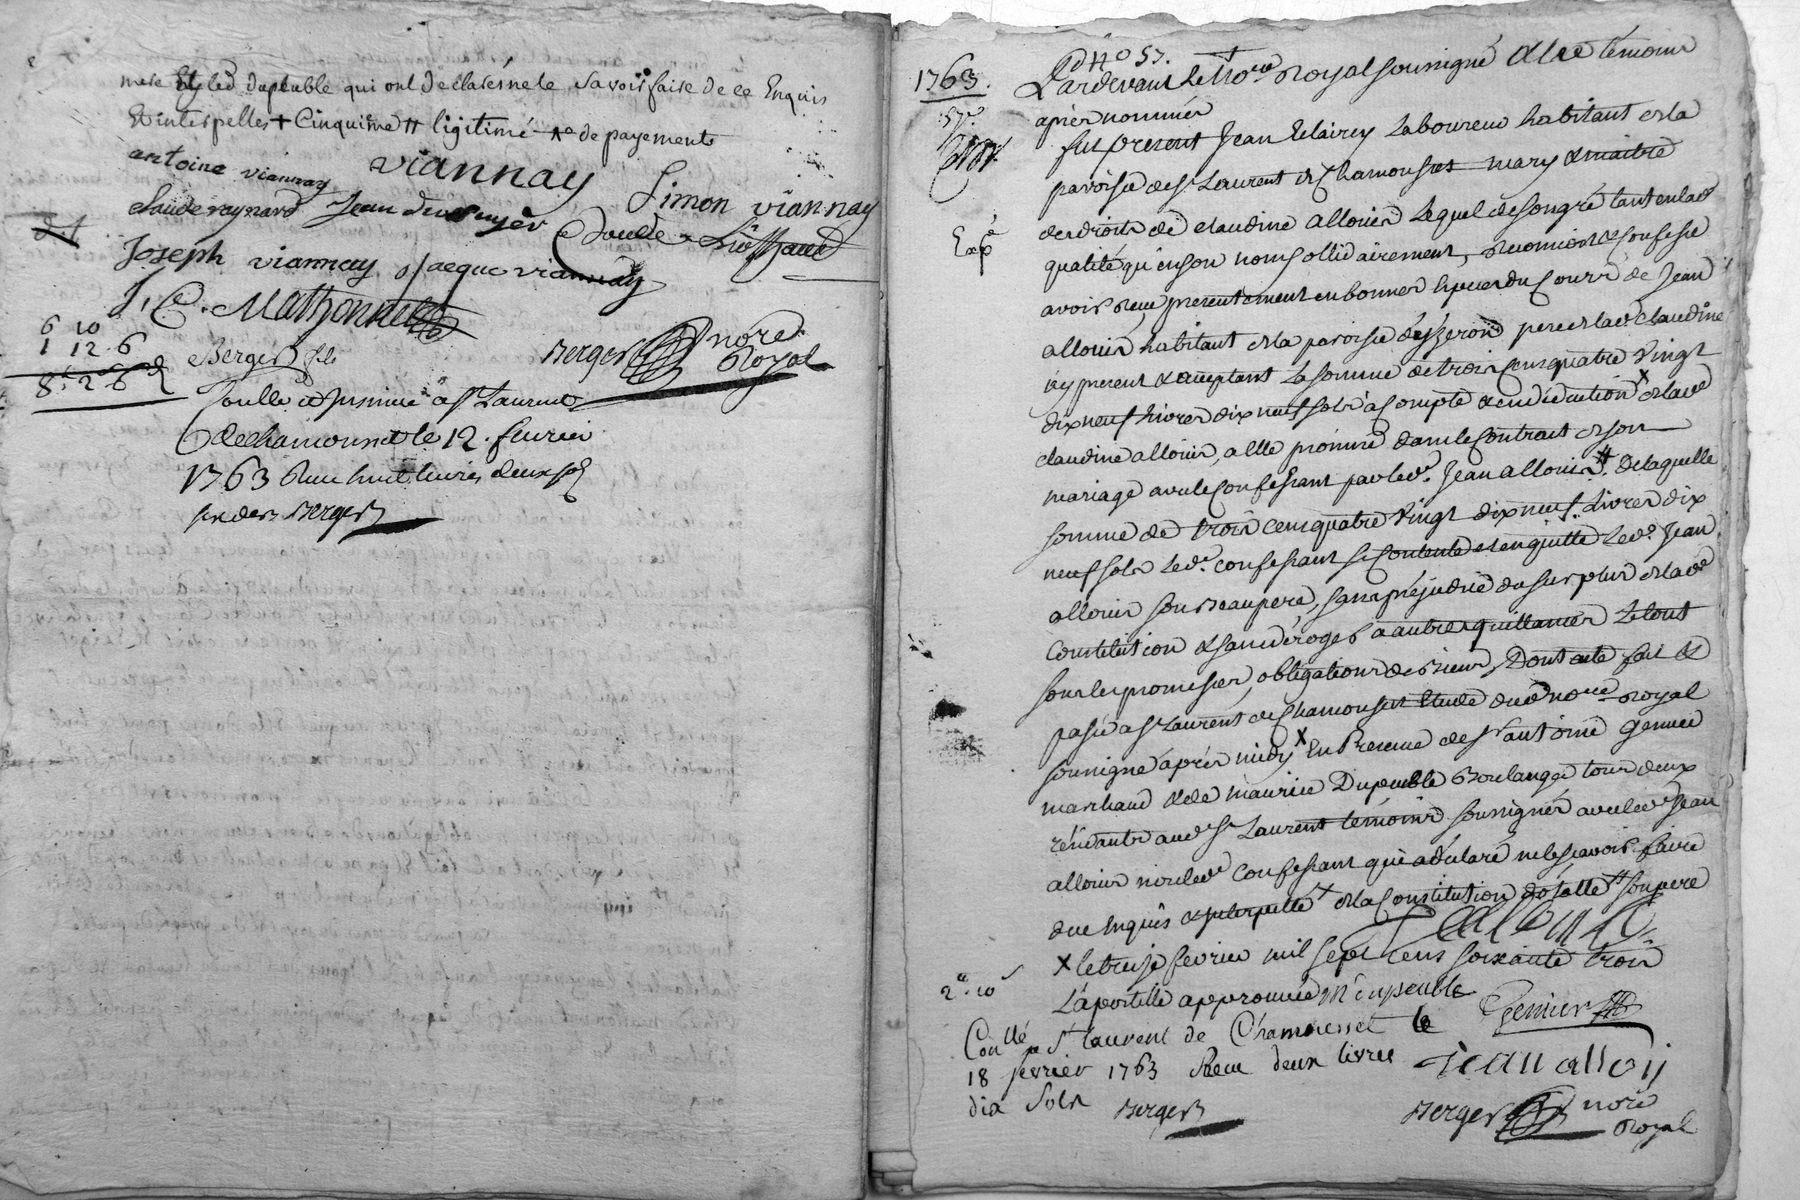 mere Et led. dupeuble qui ont declaré ne le savoir faire de ce Enquis
Et interpellés + Cinquieme # ligitimé de payements
antoine viannay viannay Simon viannay
claude raynard Jean
Joseph viannay Jacque viannay
J. C. Mathonnet
6 10
1 12 6
8 2 6
Berger fils
Berger nore Royal
Conllé et Insinué a St Laurent
de chamousset le 12. fevrier
1763 Reçu huit livres deux sols
six den. Berger
Nº 57.
1763.
57e
Pardevant le Nore Royal soussigné & les témoins
après nommés
Exp
fut present Jean Laboureur habitant de la
paroisse de St Laurent de Chamousset mary & maitre
des droits de Claudine allouin Lequel de son gré tant en lad.
qualité qu'en son nom sollidairement, reconnoit & confesse
avoir reçu presentement en bonnes especes du cours de Jean
allouin habitant de la paroisse d'yzeron pere de lad. Claudine
icy present & acceptant La somme de trois cens quatre vingt
dix neuf livres dix neuf sols à compte & en déduction x de lad.
claudine allouin, a elle promise dans le Contrat de son
mariage avec le Confessant par led. Jean allouin #. De laquelle
somme de trois cens quatre vingt dix neuf Livres dix
neuf sols led. confessant se contente & en quitte led. Jean
allouin son beaupere, sans préjudice du surplus de lad.
Constitution & sans déroger a autres quittances Le tout
sous les promesses, obligations de biens, Dont acte fait &
passé a St Laurent de Chamousset Etude dud. nore Royal
soussigné après midy x En Presence de Sr antoine genier
marchand & de maurice Dupeuble Boulanger tous deux
résidants aud. St Laurent témoins soussignés avec led. Jean
allouin non led. Confessant qui a déclaré ne le sçavoir faire
de ce Enquis & interpellé x de la Constitution dotalle # son pere
x le treize fevrier mil sept cens soixante trois
L'apostille approuvée M dupeuble
2 10
Genier
Conllé a St laurent de Chamousset le
18 fevrier 1763 Reçu deux livres
dix sols Berger
Jean alloÿ
Berger nore
Royal